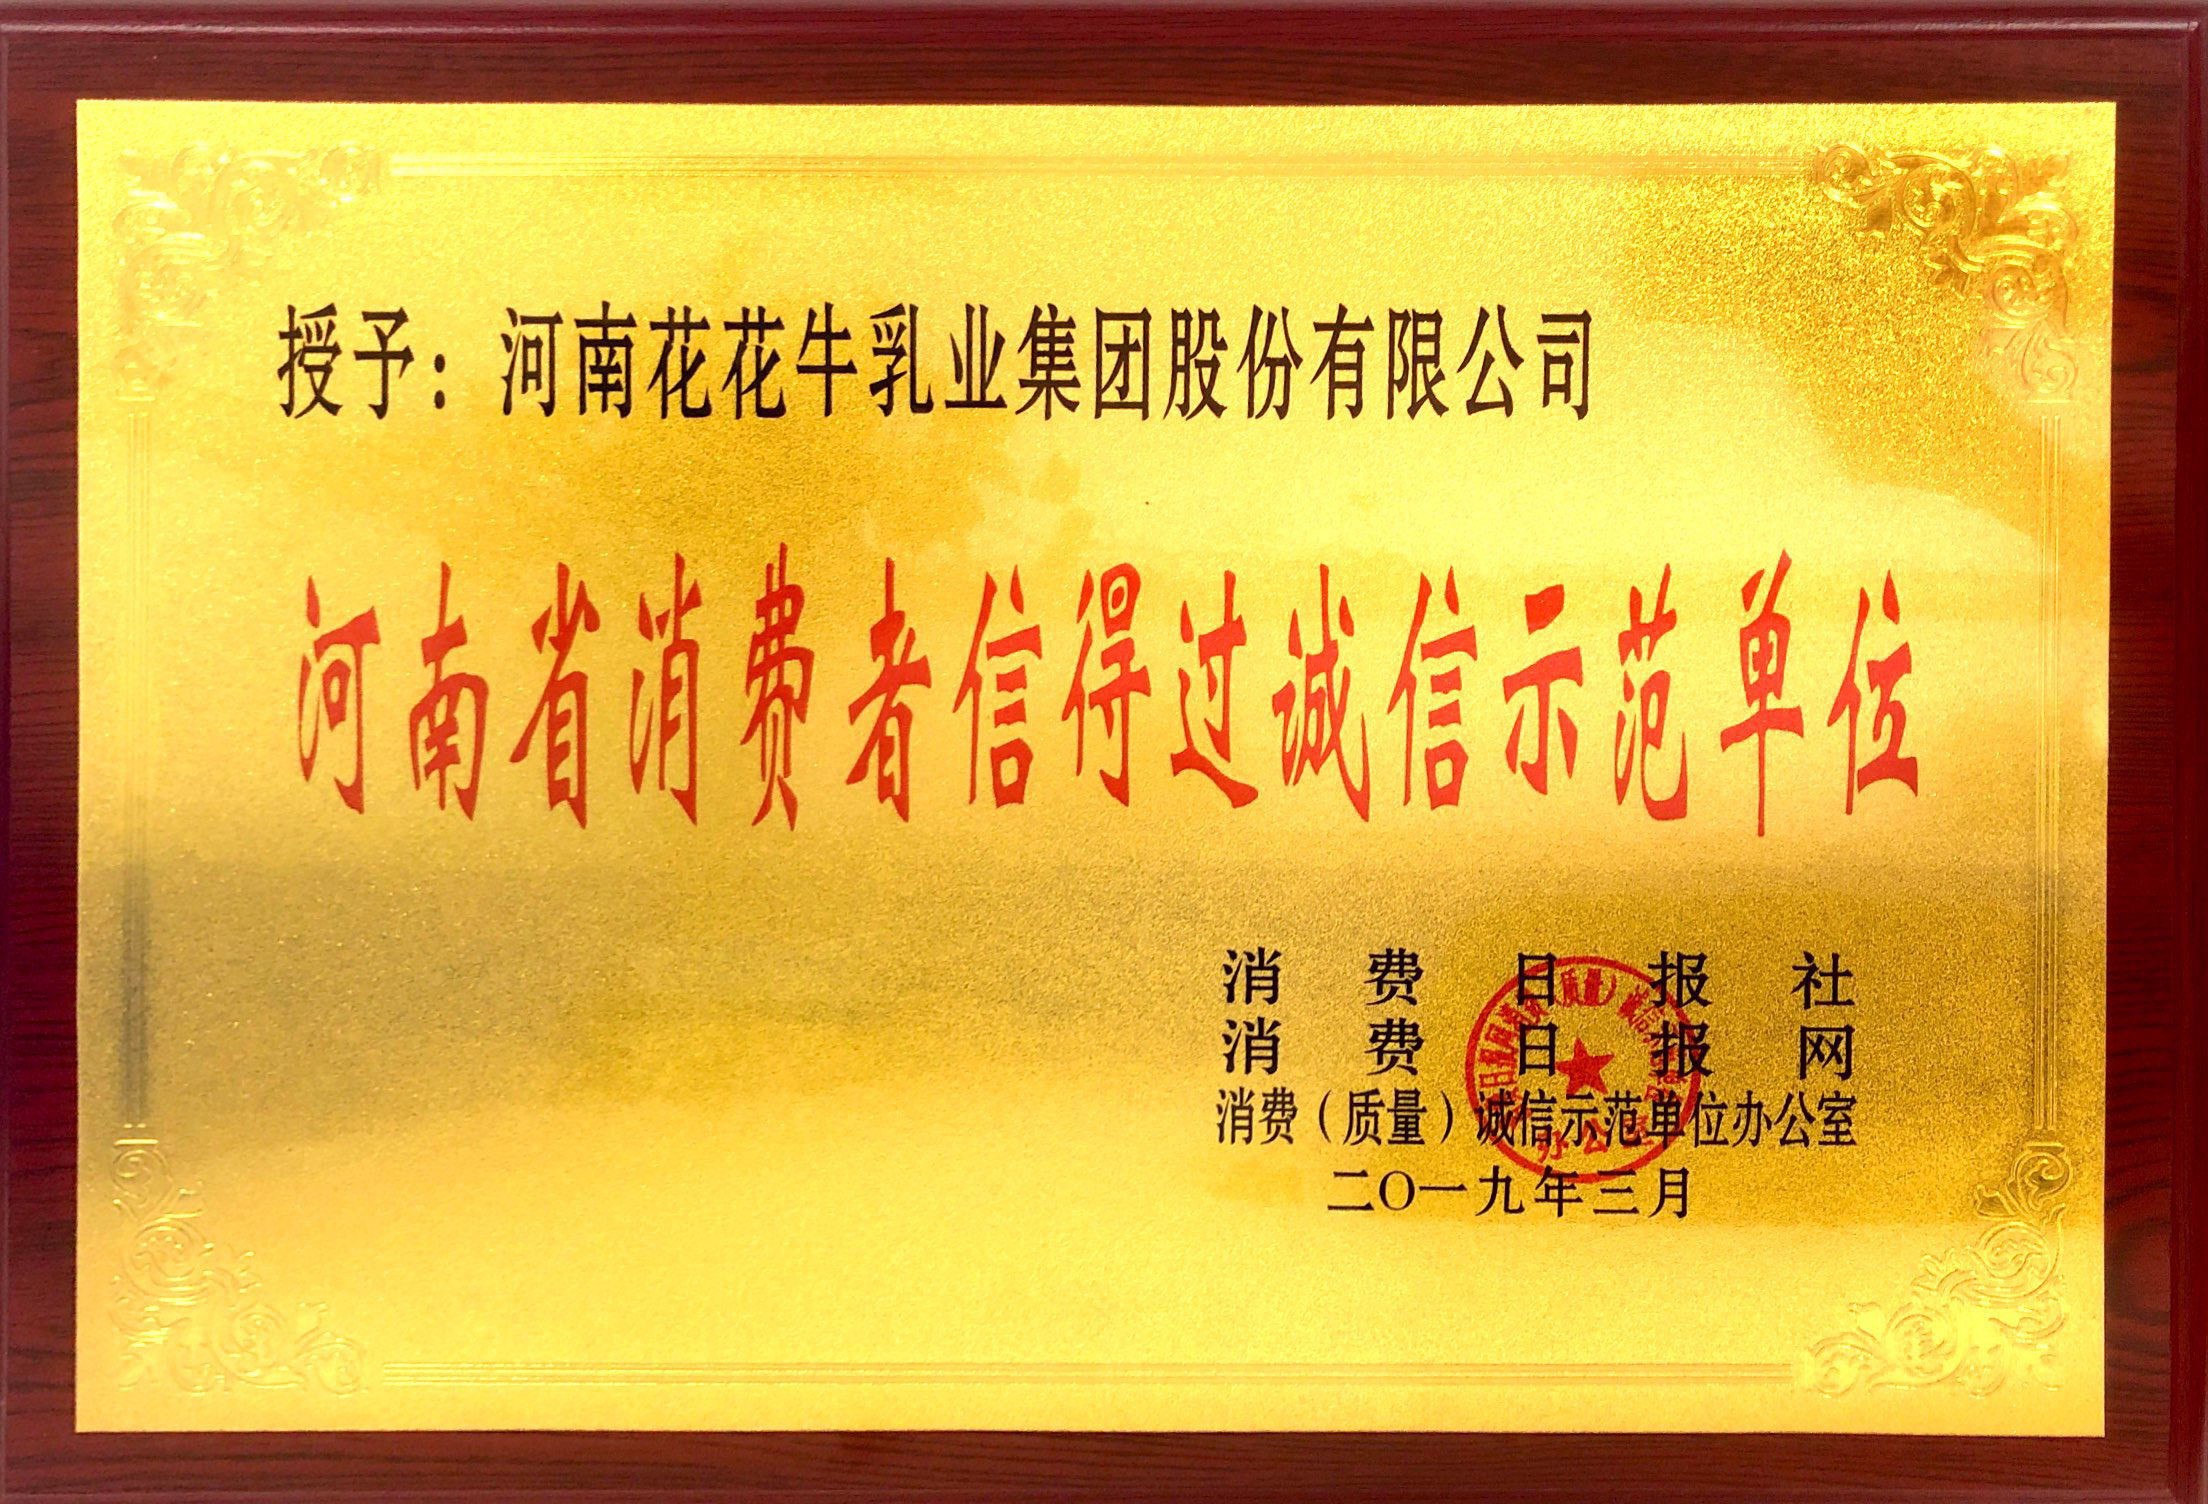 授予：河南花花牛乳业集团股份有限公司
河南省消费者信得过诚信示范单位
消费日报社
消费日报网
消费（质量）诚信示范单位办公室
二〇一九年三月